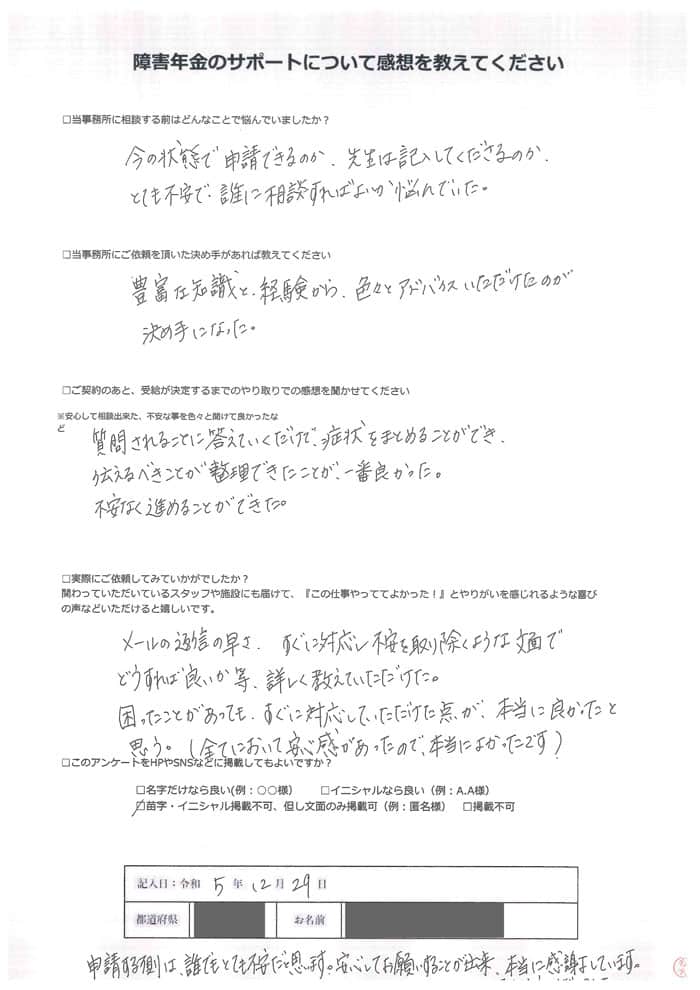 障害年金のサポートについて感想を教えてください
□当事務所に相談する前はどんなことで悩んでいましたか？
今の状態で申請できるのか、先生は記入してくださるのか、
とても不安で、誰に相談すればよいか悩んでいた。
□当事務所にご依頼を頂いた決め手があれば教えてください
豊富な知識と、経験から、色々とアドバイスいただけたのが
決め手になった。
□ご契約のあと、受給が決定するまでのやり取りでの感想を聞かせてください
※安心して相談出来た、不安な事を色々と聞けて良かったな
ど
質問されることに答えていくだけで、症状をまとめることができ、
伝えるべきことが整理できたことが、一番良かった。
不安なく進めることができた。
□実際にご依頼してみていかがでしたか？
関わっていただいているスタッフや施設にも届けて、『この仕事やっててよかった！』とやりがいを感じれるような喜び
の声などいただけると嬉しいです。
メールの返信の早さ、すぐに対応し不安を取り除くような文面で
どうすれば良いか等、詳しく教えていただけた。
困ったことがあっても、すぐに対応していただけた点が、本当に良かったと
思う。（全てにおいて安心感があったので、本当によかったです）
□このアンケートをHPやSNSなどに掲載してもよいですか？
□名字だけなら良い(例：〇〇様） □イニシャルなら良い（例：A.A様）
□苗字・イニシャル掲載不可、但し文面のみ掲載可（例：匿名様） □掲載不可
記入日：令和 5 年 12 月 29 日
都道府県 お名前
申請する側は、誰でもとても不安だと思います。安心してお願いすることが出来、本当に感謝しています。